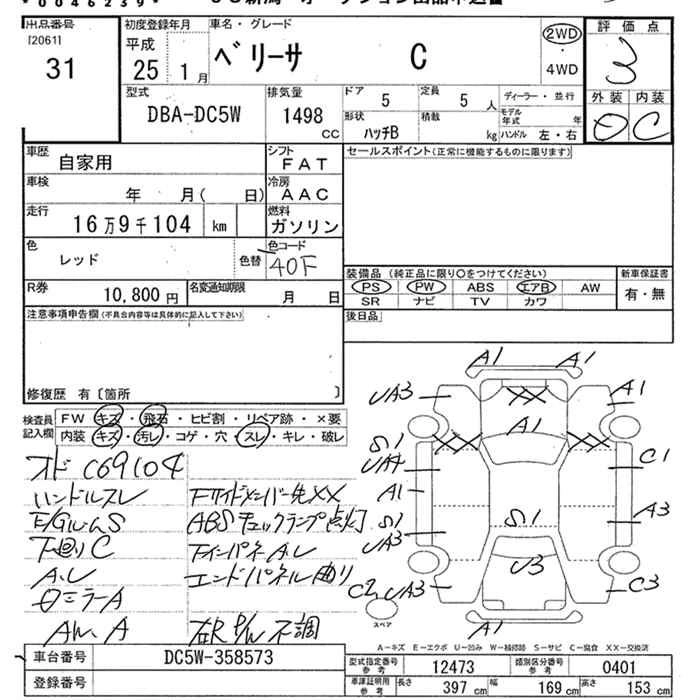 * 0046239 *
出品番号
[2061]
31
初度登録年月
平成
25 1月
車名・グレード
ベリーサ C
2WD
・
4WD
評価点
3
外装 内装
C
型式
DBA-DC5W
排気量
1498
CC
ドア
5
定員
5 人
形状
ハッチB
積載
kg
ディーラー・並行
モデル年式 年
ハンドル 左・右
車歴
自家用
シフト
FAT
車検
年 月( 日)
冷房
AAC
走行
16万9千104 km
燃料
ガソリン
色
レッド
色替
色コード
40F
R券
10,800 円
名変通知期限
月 日
セールスポイント(正常に機能するものに限ります)
装備品 (純正品に限り○をつけてください)
PS PW ABS エアB AW
SR ナビ TV カワ
新車保証書
有・無
後日品
注意事項申告欄(不具合内容等は具体的に記入して下さい)
修復歴 有〔箇所 〕
検査員記入欄
FW キズ・飛石・ヒビ割・リペア跡・×要
内装 キズ・汚レ・コゲ・穴・スレ・キレ・破レ
オドC69104
ハンドルスレ
E/GルームS
下廻りC
A.U
ミラーA
AW.A
Fサイドメンバー先XX
ABSチェックランプ点灯
エンドパネル曲り
P/W不調
A1 A1
UA3
A1
A1
S1
UA4
C1
A1
S1
S1
A3
UA3
U3
C2
UA3
C3
スペア
A1
A…キズ E…エクボ U…凹み W…補修跡 S…サビ C…腐食 XX…交換済
車台番号
DC5W-358573
登録番号
型式指定番号
参考
12473
類別区分番号
参考
0401
車庫証明用
参考
長さ
397 cm
幅
169 cm
高さ
153 cm